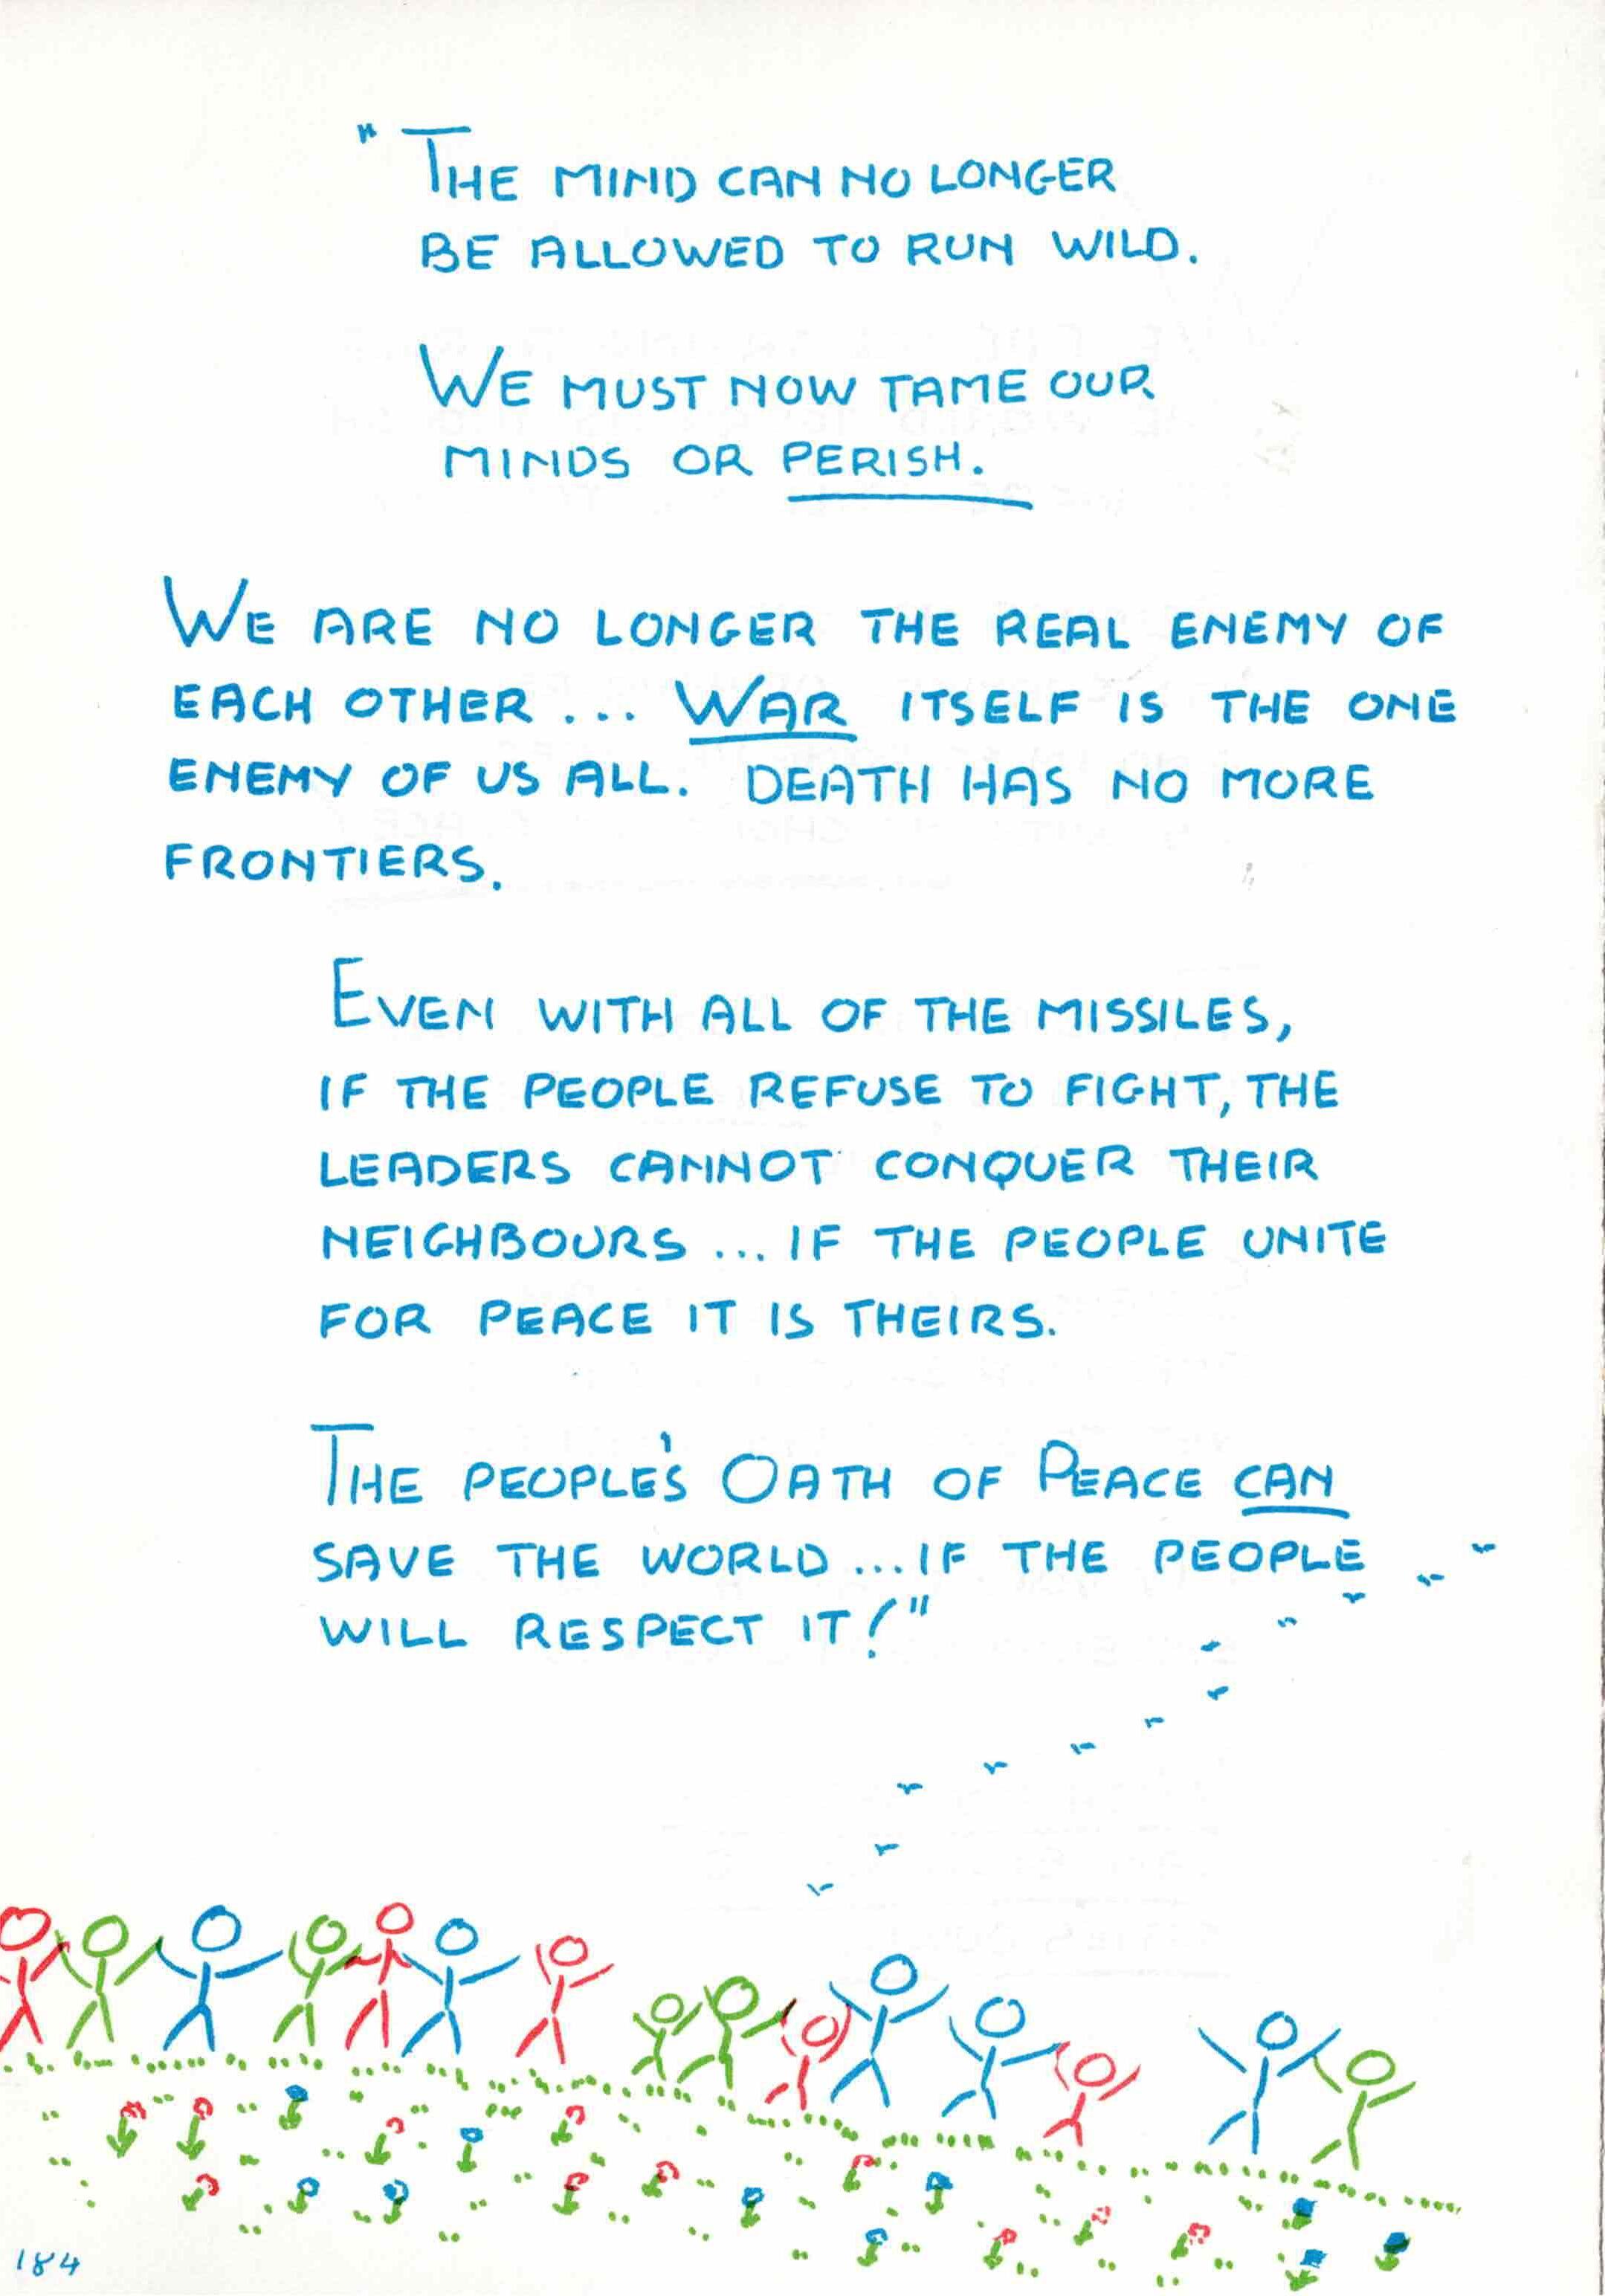 "THE MIND CAN NO LONGER
BE ALLOWED TO RUN WILD.
WE MUST NOW TAME OUR
MINDS OR PERISH.
WE ARE NO LONGER THE REAL ENEMY OF
EACH OTHER ... WAR ITSELF IS THE ONE
ENEMY OF US ALL. DEATH HAS NO MORE
FRONTIERS.
EVEN WITH ALL OF THE MISSILES,
IF THE PEOPLE REFUSE TO FIGHT, THE
LEADERS CANNOT CONQUER THEIR
NEIGHBOURS ... IF THE PEOPLE UNITE
FOR PEACE IT IS THEIRS.
THE PEOPLE'S OATH OF PEACE CAN
SAVE THE WORLD ... IF THE PEOPLE
WILL RESPECT IT!"
184